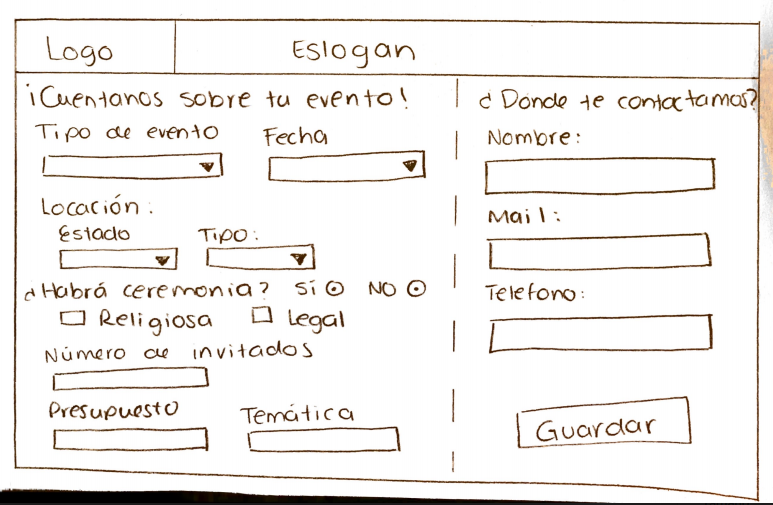 Logo
Eslogan
¡Cuentanos sobre tu evento!
Tipo de evento
Fecha
Locación:
Estado
Tipo:
¿Habrá ceremonia? Sí NO
Religiosa
Legal
Número de invitados
Presupuesto
Temática
¿Donde te contactamos?
Nombre:
Mail:
Telefono:
Guardar